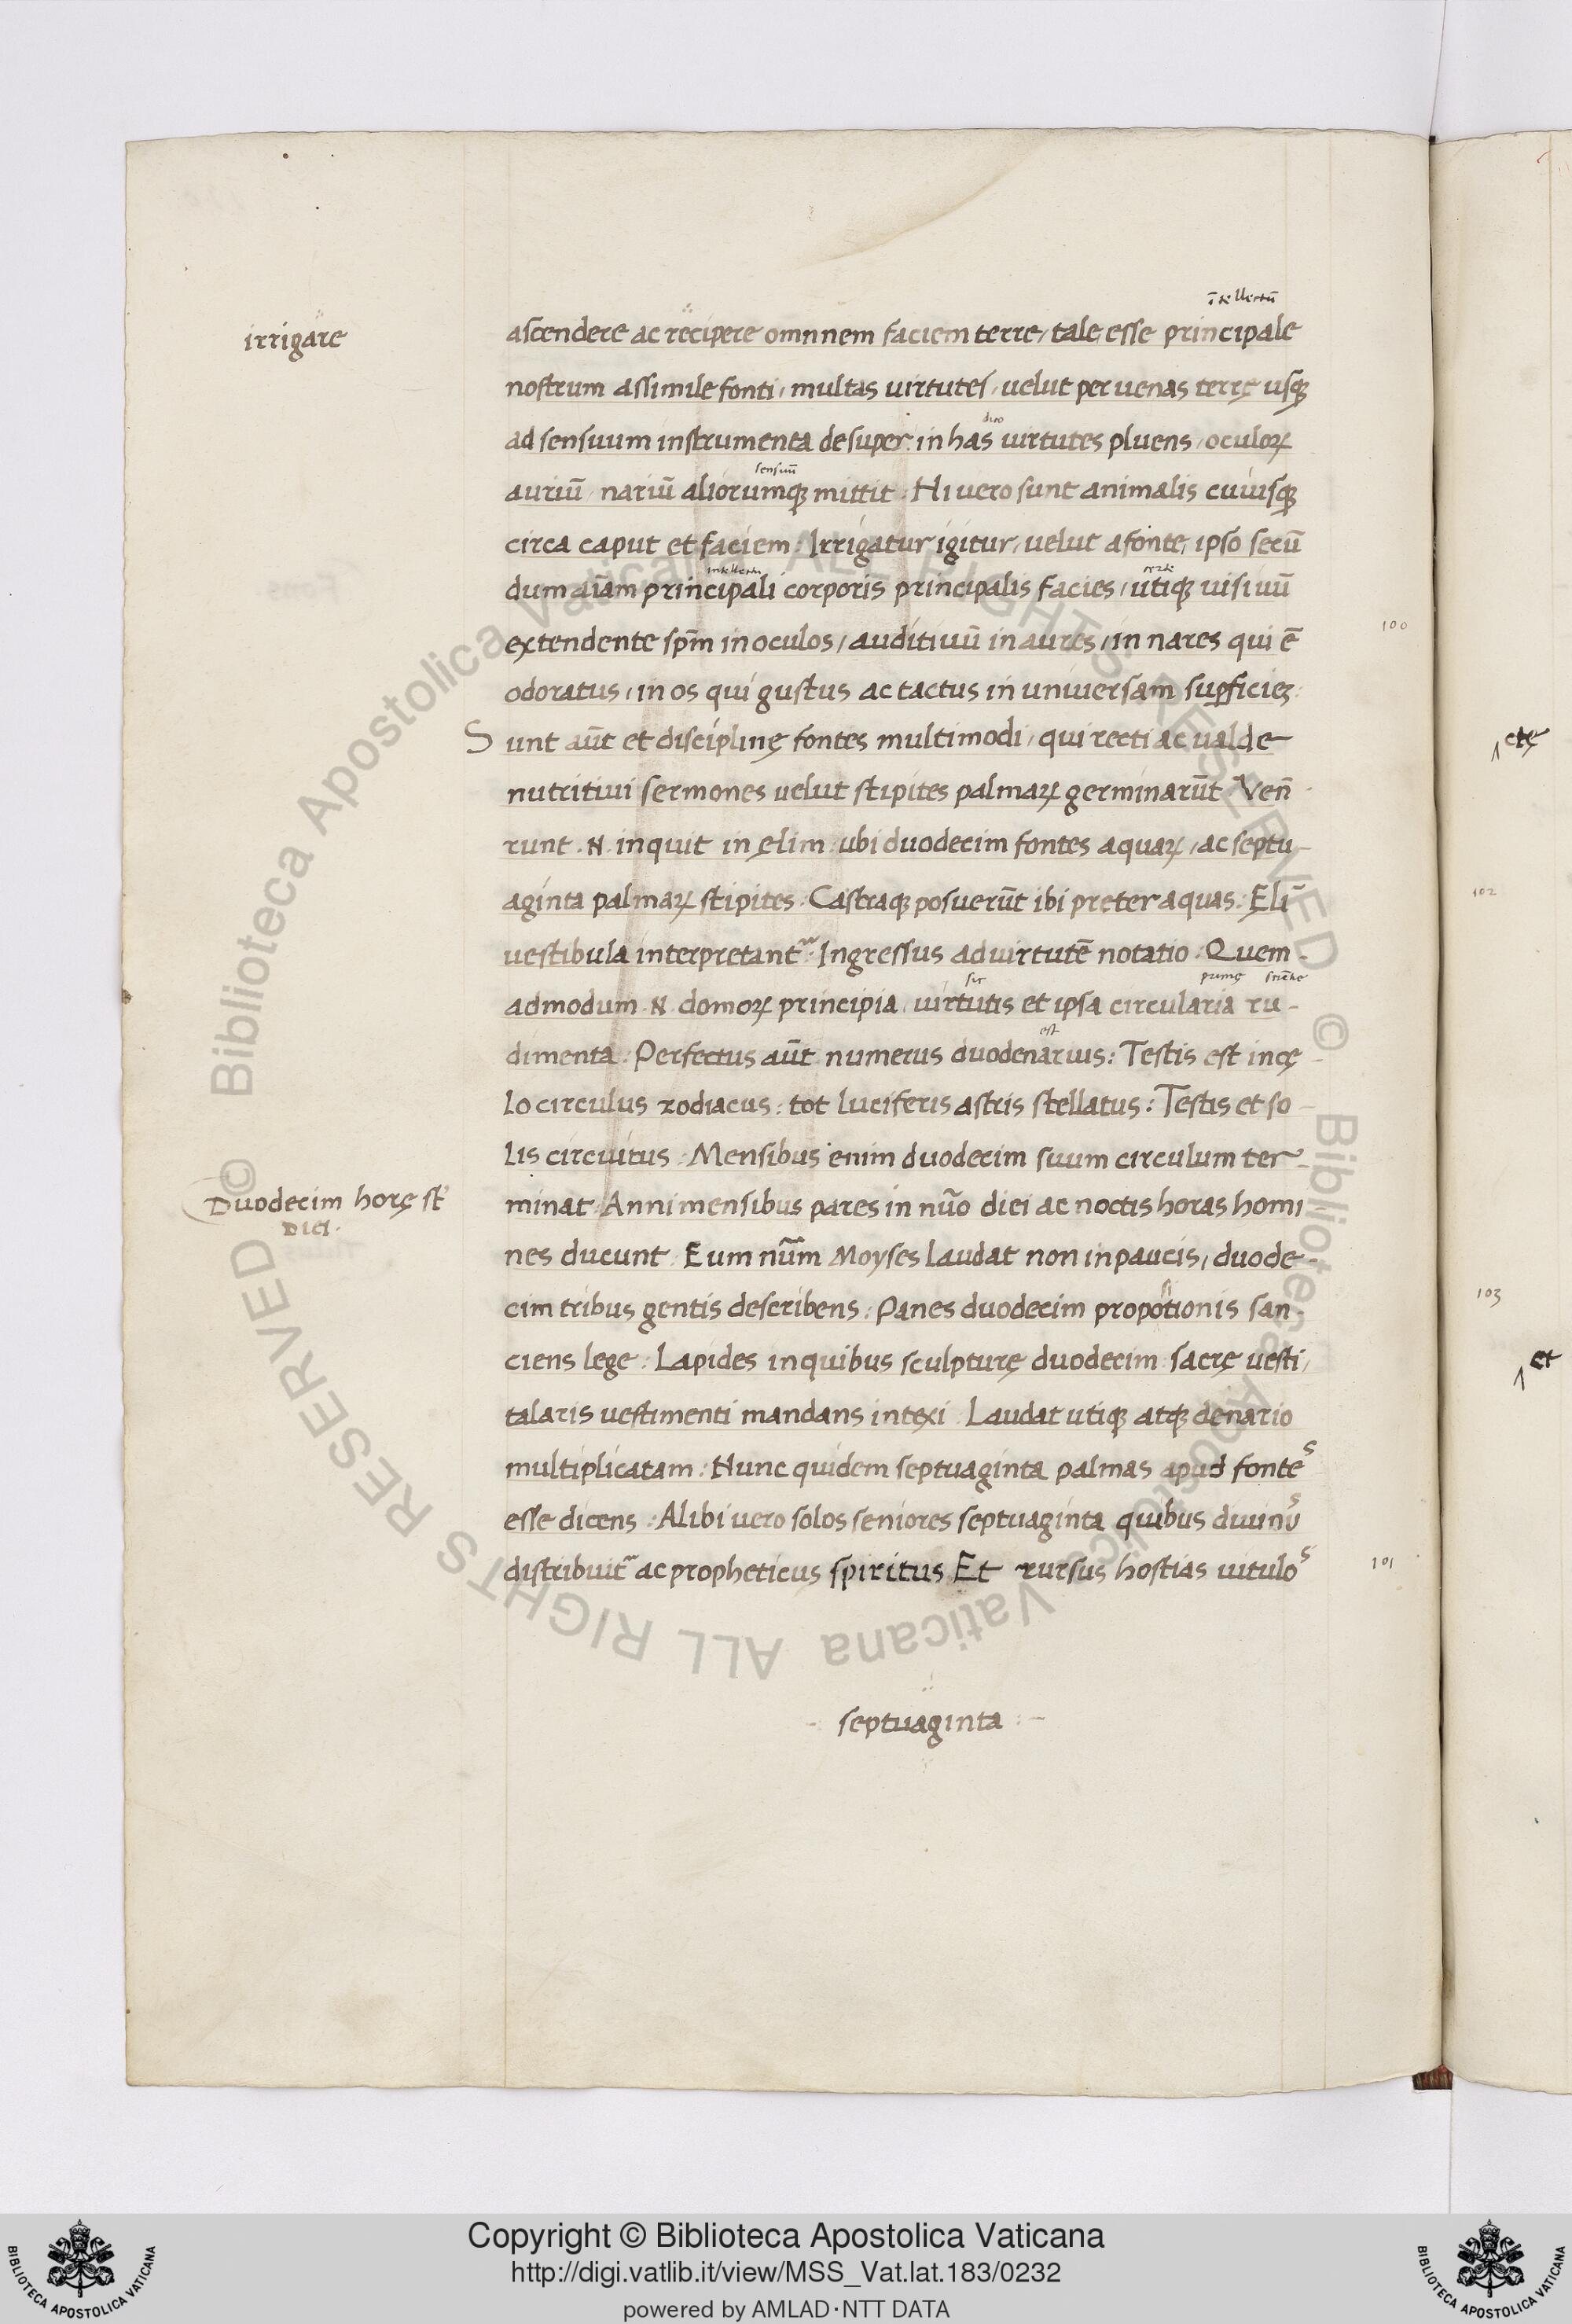 ītellectū
irrigare
ascendere ac recipere omnnem faciem terre, tale esse principale
nostrum assimile fonti, multas virtutes, velut per venas terrę usqꝫ
dico
ad sensuum instrumenta desuper in has virtutes pluens, oculoꝝ
sensuū
auriū, nariū aliorumqꝫ mittit. Hi vero sunt animalis cuiusqꝫ
circa caput et faciem: Irrigatur igitur, velut a fonte, ipso secū
intellectu
dum aīam principali corporis principalis facies, utiqꝫ visivū
extendente spm̄ in oculos, auditivū in aures, in nares qui ē
odoratus, in os qui gustus ac tactus in universam suꝑficieꝫ:
Sunt aūt et disciplinę fontes multimodi, qui recti ac valde
nutritivi sermones velut stipites palmaꝝ germinarūt Ven̄
runt .N. inquit in ęlim: ubi duodecim fontes aquaꝝ, ac septu-
aginta palmaꝝ stipites. Castraqꝫ posuerūt ibi preter aquas: Elī
vestibula interpretantr: Ingressus ad virtutē notatio: Quem-
sic primę sciētie
admodum .N. domoꝝ principia, virtutis et ipsa circularia ru-
est
dimenta: Perfectus aūt numerus duodenarius: Testis est in cę-
lo circulus zodiacus: tot luciferis astris stellatus: Testis et so-
lis circuitus: Mensibus enim duodecim suum circulum ter-
Duodecim horę st̄
Dici.
minat. Anni mensibus pares in nūo diei ac noctis horas homi
nes ducunt. Eum nūm Moyses laudat non in paucis, duode-
cim tribus gentis describens: Panes duodecim propositionis san-
ciens lege: Lapides in quibus sculpturę duodecim sacrę vesti,
talaris vestimenti mandans intexi. Laudat utiqꝫ atqꝫ denario
multiplicatam: Nunc quidem septuaginta palmas apud fontes
esse dicens: Alibi vero solos seniores septuaginta quibus divinus
distribuitr ac propheticus spiritus Et rursus hostias vitulos
septuaginta
100
101
102
103
ctę
et
Copyright © Biblioteca Apostolica Vaticana
http://digi.vatlib.it/view/MSS_Vat.lat.183/0232
powered by AMLAD·NTT DATA
BIBLIOTECA APOSTOLICA VATICANA
BIBLIOTECA APOSTOLICA VATICANA
© Biblioteca Apostolica Vaticana ALL RIGHTS RESERVED © Biblioteca Apostolica Vaticana ALL RIGHTS RESERVED